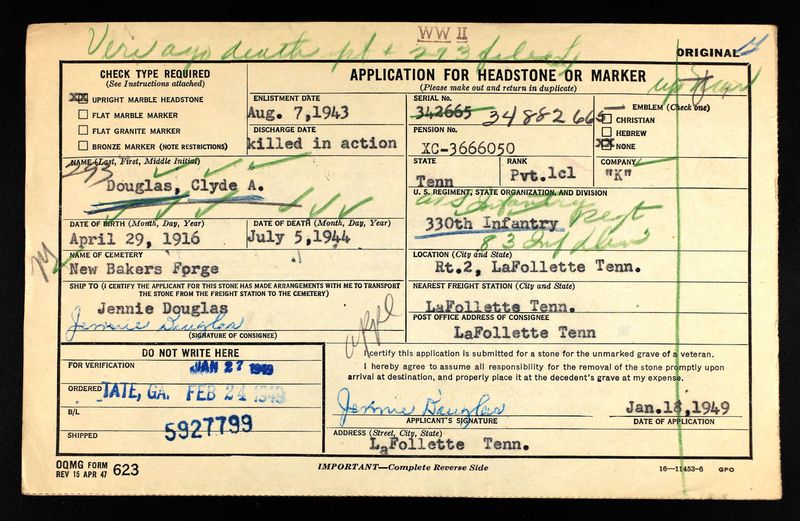 WW II
Veri ago death pl + 293 filed
ORIGINAL
CHECK TYPE REQUIRED
(See Instructions attached)
XX UPRIGHT MARBLE HEADSTONE
FLAT MARBLE MARKER
FLAT GRANITE MARKER
BRONZE MARKER (NOTE RESTRICTIONS)
APPLICATION FOR HEADSTONE OR MARKER
(Please make out and return in duplicate)
ENLISTMENT DATE
Aug. 7,1943
DISCHARGE DATE
killed in action
SERIAL No.
342665 34882665
PENSION No.
XC-3666050
EMBLEM (Check one)
CHRISTIAN
HEBREW
XX NONE
NAME (Last, First, Middle Initial)
293
Douglas, Clyde A.
STATE
Tenn
RANK
Pvt.1cl
COMPANY
"K"
U. S. REGIMENT, STATE ORGANIZATION, AND DIVISION
US Infantry Regt
330th Infantry
83 Inf Div
DATE OF BIRTH (Month, Day, Year)
April 29, 1916
DATE OF DEATH (Month, Day, Year)
July 5,1944
NAME OF CEMETERY
New Bakers Forge
LOCATION (City and State)
Rt.2, LaFollette Tenn.
SHIP TO (I CERTIFY THE APPLICANT FOR THIS STONE HAS MADE ARRANGEMENTS WITH ME TO TRANSPORT
THE STONE FROM THE FREIGHT STATION TO THE CEMETERY)
Jennie Douglas
Jennie Douglas
(SIGNATURE OF CONSIGNEE)
NEAREST FREIGHT STATION (City and State)
LaFollette Tenn.
POST OFFICE ADDRESS OF CONSIGNEE
LaFollette Tenn
appl
DO NOT WRITE HERE
FOR VERIFICATION
JAN 27 1949
ORDERED
TATE, GA. FEB 24 1949
B/L
5927799
SHIPPED
I certify this application is submitted for a stone for the unmarked grave of a veteran.
I hereby agree to assume all responsibility for the removal of the stone promptly upon
arrival at destination, and properly place it at the decedent's grave at my expense.
Jennie Douglas
APPLICANT'S SIGNATURE
Jan.18,1949
DATE OF APPLICATION
ADDRESS (Street, City, State)
LaFollette Tenn.
OQMG FORM
REV 15 APR 47 623
IMPORTANT—Complete Reverse Side
16—11453-6 GPO